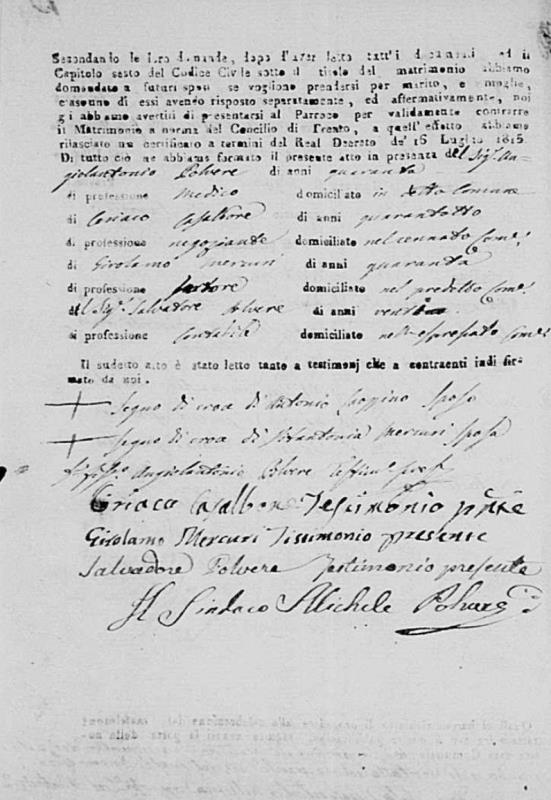 Secondando le loro domande, dopo d'aver letto tutt'i documenti ed il
Capitolo sesto del Codice Civile sotto il titolo del matrimonio abbiamo
domandato a futuri sposi se vogliono prendersi per marito, e moglie,
e ciascuno di essi avendo risposto separatamente, ed affermativamente, noi
gl abbiamo avertiti di presentarsi al Parroco per validamente contrarre
il Matrimonio a norma del Concilio di Trento, a quell'effetto abbiamo
rilasciato un certificato a termini del Real Decreto de' 16 Luglio 1815.
Di tutto ciò ne abbiamo formato il presente atto in presenza del Sig. An-
giolantonio Polvere di anni quaranta
di professione medico domiciliato in detto Comune
di Ceriaco Casalbore di anni quarantotto
di professione negoziante domiciliato nel cennato Come
di Girolamo Mercuri di anni quaranta
di professione sartore domiciliato nel predetto Come
del Sig. Salvatore Polvere di anni
di professione contabile domiciliato nell'espressato Come
Il sudetto atto è stato letto tanto a testimonj che a contraenti indi fir-
mato da noi.
Segno di croce di Antonio sposo
Segno di croce di Mercuri sposa
Angiolantonio Polvere
Ciriaco Casalbore Testimonio pnte
Girolamo Mercuri Tistimonio presente
Salvadore Polvere Testimonio presente
Il Sindaco Michele Polvere